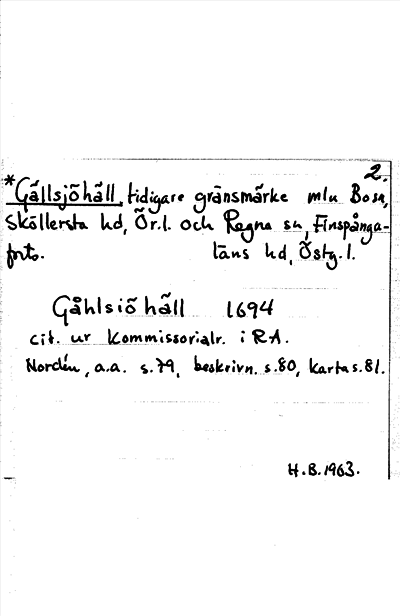 2.
*Gällsjöhäll, tidigare gränsmärke mlu Bosn,
Sköllersta hd, Ör.l. och Regna sn, Finspånga-
forts. läns hd, Östg.l.
Gåhlsiö häll 1694
cit. ur Kommissorialr. i RA.
Nordén, a.a. s.79, beskrivn. s.80, karta s.81.
H.B.1963.